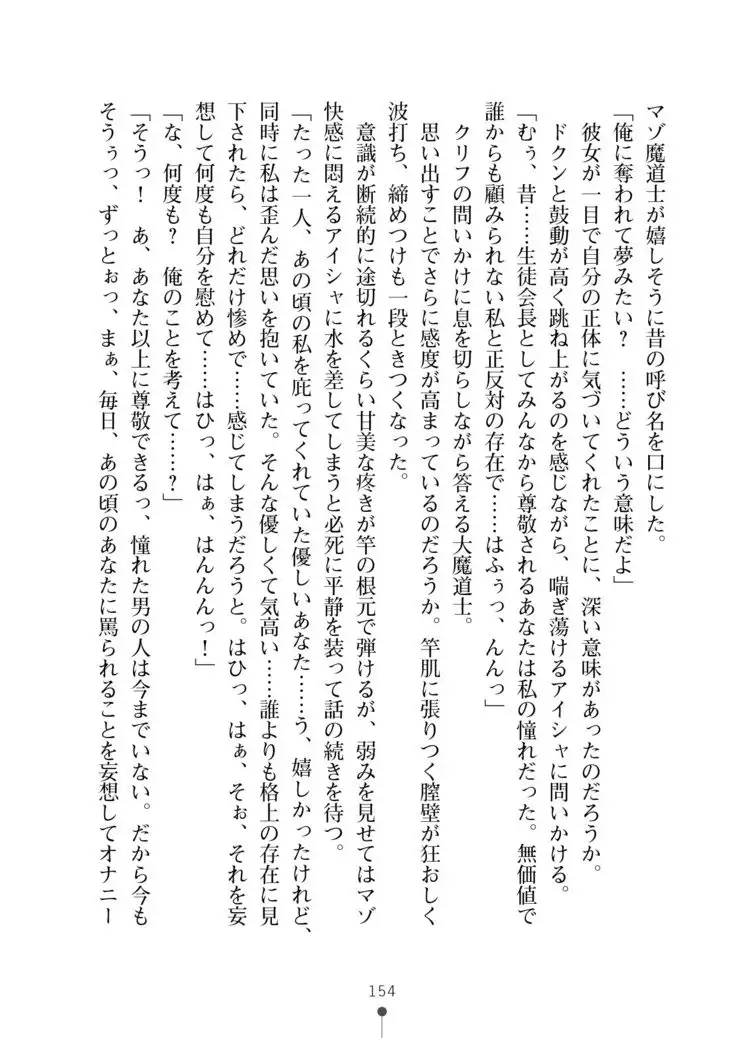 マゾ魔道士が嬉しそうに昔の呼び名を口にした。
「俺に奪われて夢みたい？　……どういう意味だよ」
彼女が一目で自分の正体に気づいてくれたことに、深い意味があったのだろうか。
ドクンと鼓動が高く跳ね上がるのを感じながら、喘ぎ蕩けるアイシャに問いかける。
「むぅ、昔……生徒会長としてみんなから尊敬されるあなたは私の憧れだった。無価値で
誰からも顧みられない私と正反対の存在で……はふぅっ、んんっ」
クリフの問いかけに息を切らしながら答える大魔道士。
思い出すことでさらに感度が高まっているのだろうか。竿肌に張りつく膣壁が狂おしく
波打ち、締めつけも一段ときつくなった。
意識が断続的に途切れるくらい甘美な疼きが竿の根元で弾けるが、弱みを見せてはマゾ
快感に悶えるアイシャに水を差してしまうと必死に平静を装って話の続きを待つ。
「たった一人、あの頃の私を庇ってくれていた優しいあなた……う、嬉しかったけれど、
同時に私は歪んだ思いを抱いていた。そんな優しくて気高い……誰よりも格上の存在に見
下されたら、どれだけ惨めで……感じてしまうだろうと。はひっ、はぁ、そぉ、それを妄
想して何度も自分を慰めて……はひっ、はぁ、はんんんっ！」
「な、何度も？　俺のことを考えて……？」
「そうっ！　あ、あなた以上に尊敬できるっ、憧れた男の人は今までいない。だから今も
そうぅっ、ずっとぉっ、まぁ、毎日、あの頃のあなたに罵られることを妄想してオナニー
154